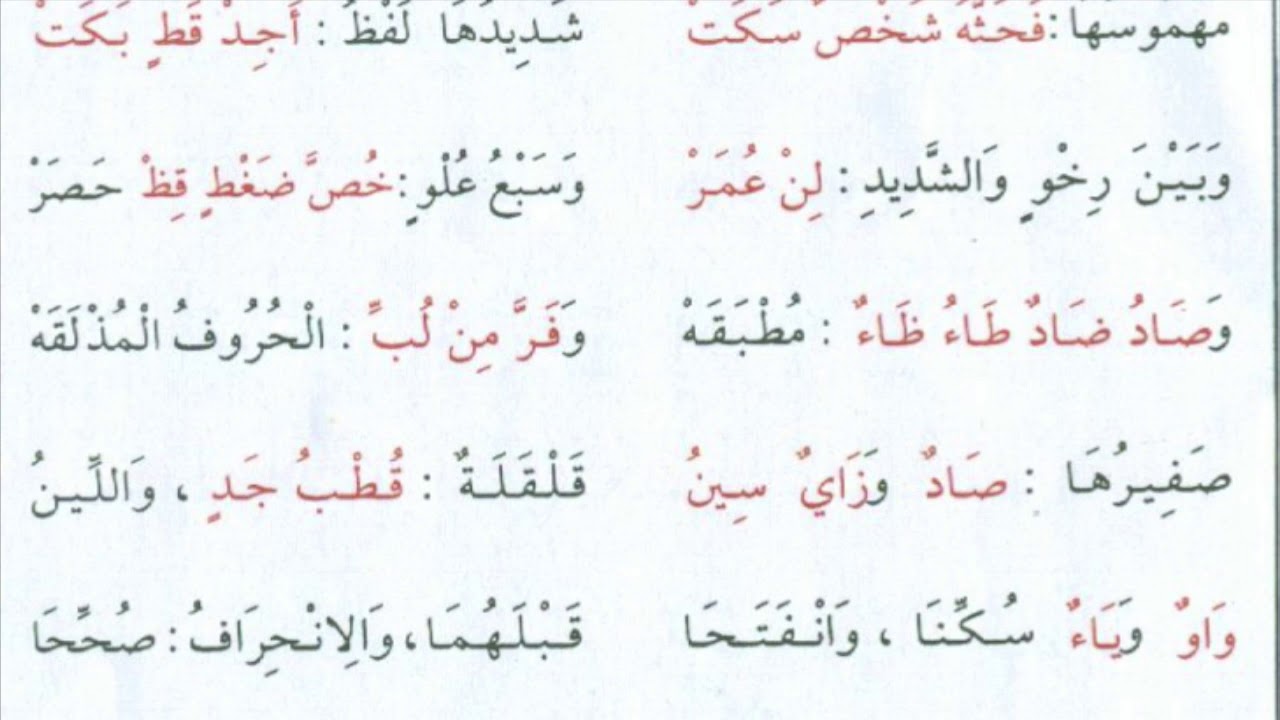 مهموسها: فَحَثَّهُ شَخْصٌ سَكَتَ شَدِيدُهَا لَفْظُ : أَجِدْ قَطٍ بَكَتْ
وَبَيْنَ رِخْوٍ وَالشَّدِيدِ : لِنْ عُمَرْ وَسَبْعُ عُلْوٍ: خُصَّ ضَغْطٍ قِظْ حَصَرْ
وَصَادُ ضَادٌ طَاءُ ظَاءٌ : مُطْبَقَهْ وَفَرَّ مِنْ لُبِّ : الْحُرُوفُ الْمُذْلَقَهْ
صَفِيرُهَا : صَادٌ وَزَايٌ سِينُ قَلْقَلَةٌ : قُطْبُ جَدٍ ، وَاللِّينُ
وَاوٌ وَيَاءٌ سُكِّنَا ، وَانْفَتَحَا قَبْلَهُمَا، وَالِانْحِرَافُ : صُحِّحَا